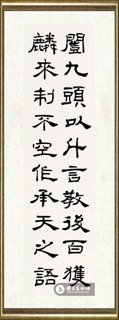 闓九頭以什言教後百獲
麟來制不空作承天之語